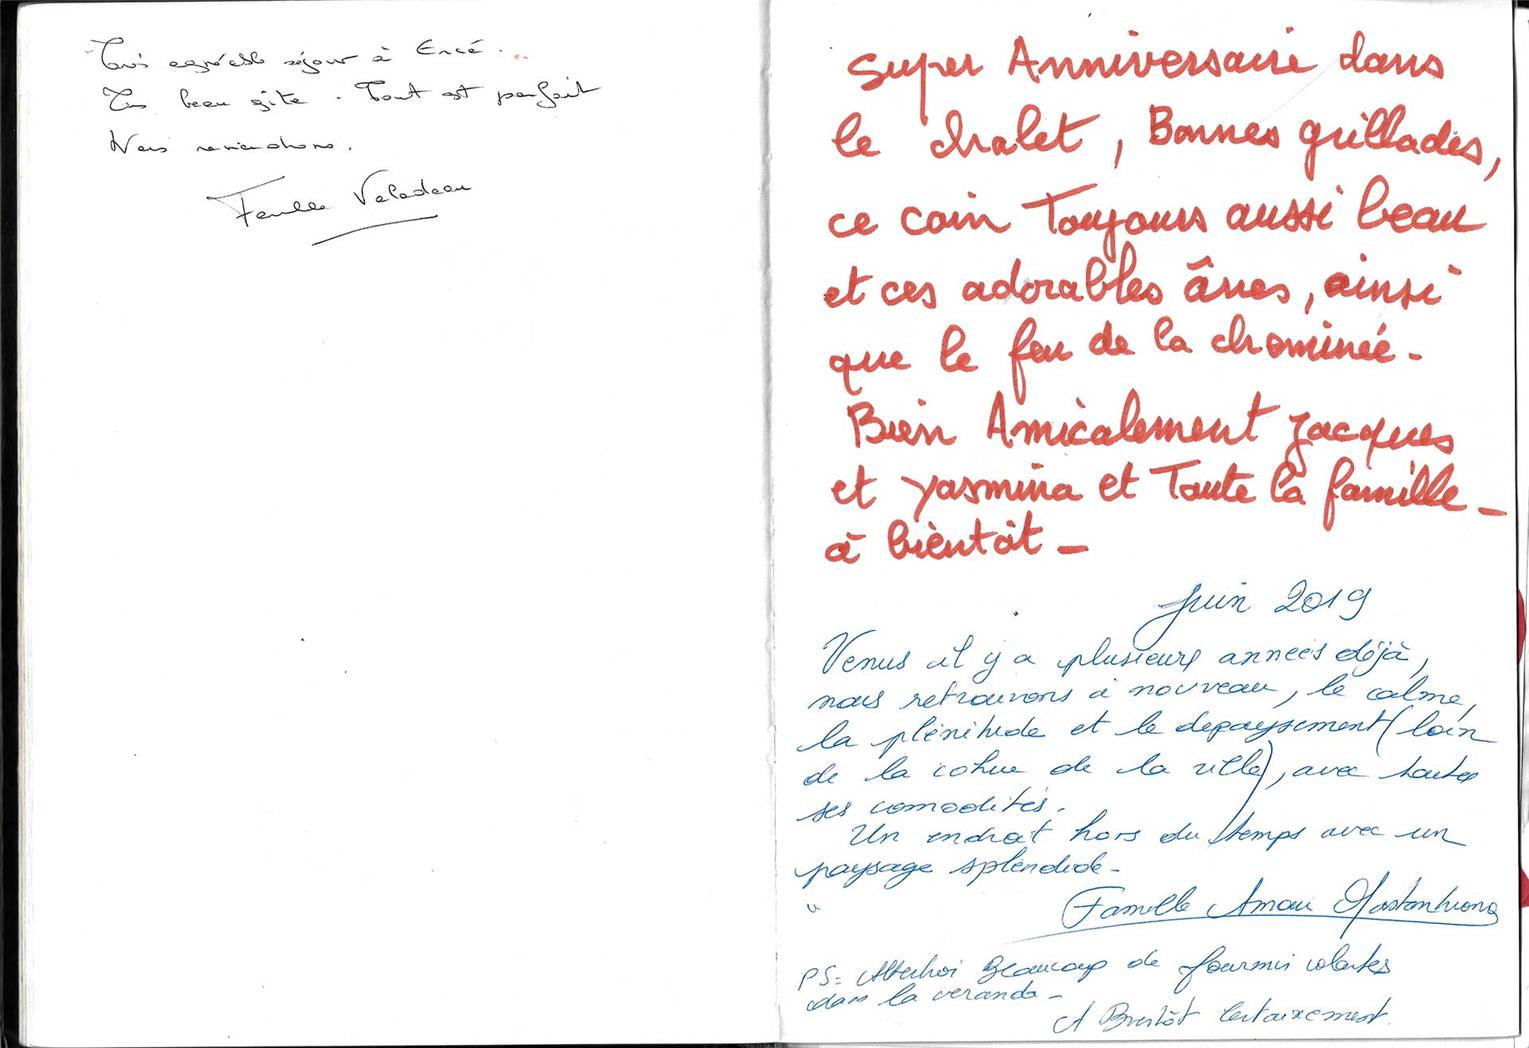 Très agréable séjour à Ercé.
Très beau gîte. Tout est parfait
Nous reviendrons.
Famille Valadeau
Super Anniversaire dans
le chalet, Bonnes grillades,
ce coin Toujours aussi beau
et ces adorables ânes, ainsi
que le feu de la cheminée -
Bien Amicalement Jacques
et yasmina et Toute la famille -
à bientôt -
Juin 2019
Venus il y a plusieurs années déjà,
nous retrouvons à nouveau, le calme,
la plénitude et le depaysement (loin
de la cohue de la ville), avec toutes
ses comodités.
Un endroit hors du temps avec un
paysage splendide -
Famille Amari
PS = Beaucoup de fourmis volantes
dans la veranda -
A Bientôt certainement.